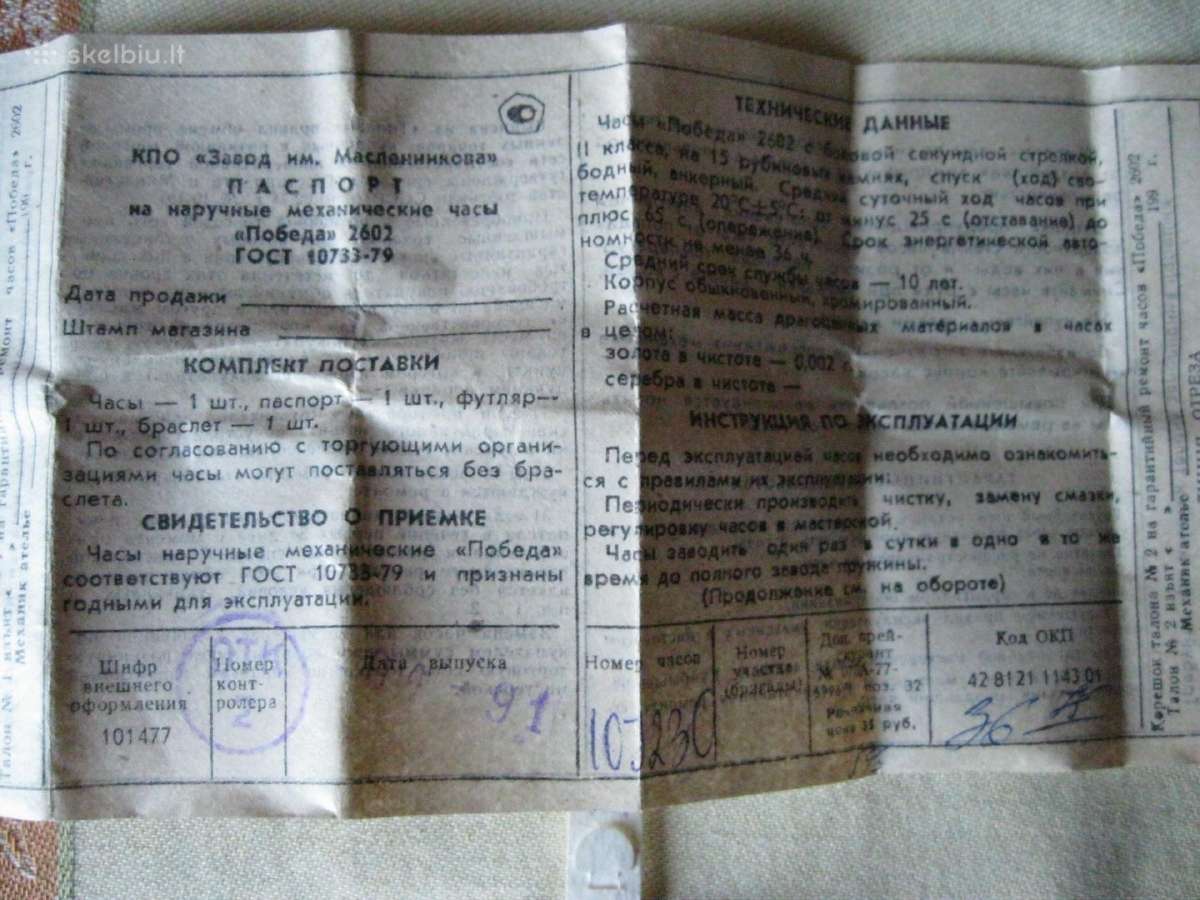 skelbiu.lt
КПО «Завод им. Масленникова»
ПАСПОРТ
на наручные механические часы
«Победа» 2602
ГОСТ 10733-79
Дата продажи
Штамп магазина
КОМПЛЕКТ ПОСТАВКИ
Часы — 1 шт., паспорт — 1 шт., футляр—
1 шт., браслет — 1 шт.
По согласованию с торгующими органи-
зациями часы могут поставляться без бра-
слета.
СВИДЕТЕЛЬСТВО О ПРИЕМКЕ
Часы наручные механические «Победа»
соответствуют ГОСТ 10733-79 и признаны
годными для эксплуатации.
Шифр
внешнего
оформления
101477
Номер
конт-
ролера
ОТК
2
Дата выпуска
91
ТЕХНИЧЕСКИЕ ДАННЫЕ
Часы «Победа» 2602 с боковой секундной стрелкой,
II класса, на 15 рубиновых камнях, спуск (ход) сво-
бодный, анкерный. Средний суточный ход часов при
температуре 20°С±5°С: от минус 25 с (отставание) до
плюс 65 с. (опережение). Срок энергетической авто-
номности не менее 36 ч.
Средний срок службы часов — 10 лет.
Корпус обыкновенный, хромированный.
Расчетная масса драгоценных материалов в часах
в целом:
золота в чистоте — 0,002
серебра в чистоте —
ИНСТРУКЦИЯ ПО ЭКСПЛУАТАЦИИ
Перед эксплуатацией часов необходимо ознакомить-
ся с правилами их эксплуатации:
Периодически производить чистку, замену смазки,
регулировку часов в мастерской.
Часы заводить один раз в сутки в одно и то же
время до полного завода пружины.
(Продолжение см. на обороте)
Номер часов
Номер
участка
(бригады)
Доп. прей-
скурант
поз. 32
Розничная
цена 35 руб.
Код ОКП
42 8121 1143 01
36
Корешок талона № 2 на гарантийный ремонт часов «Победа» 2602
Талон № 2 изъят « » 199 г.
Механик ателье
часов «Победа» 2602
Механик ателье